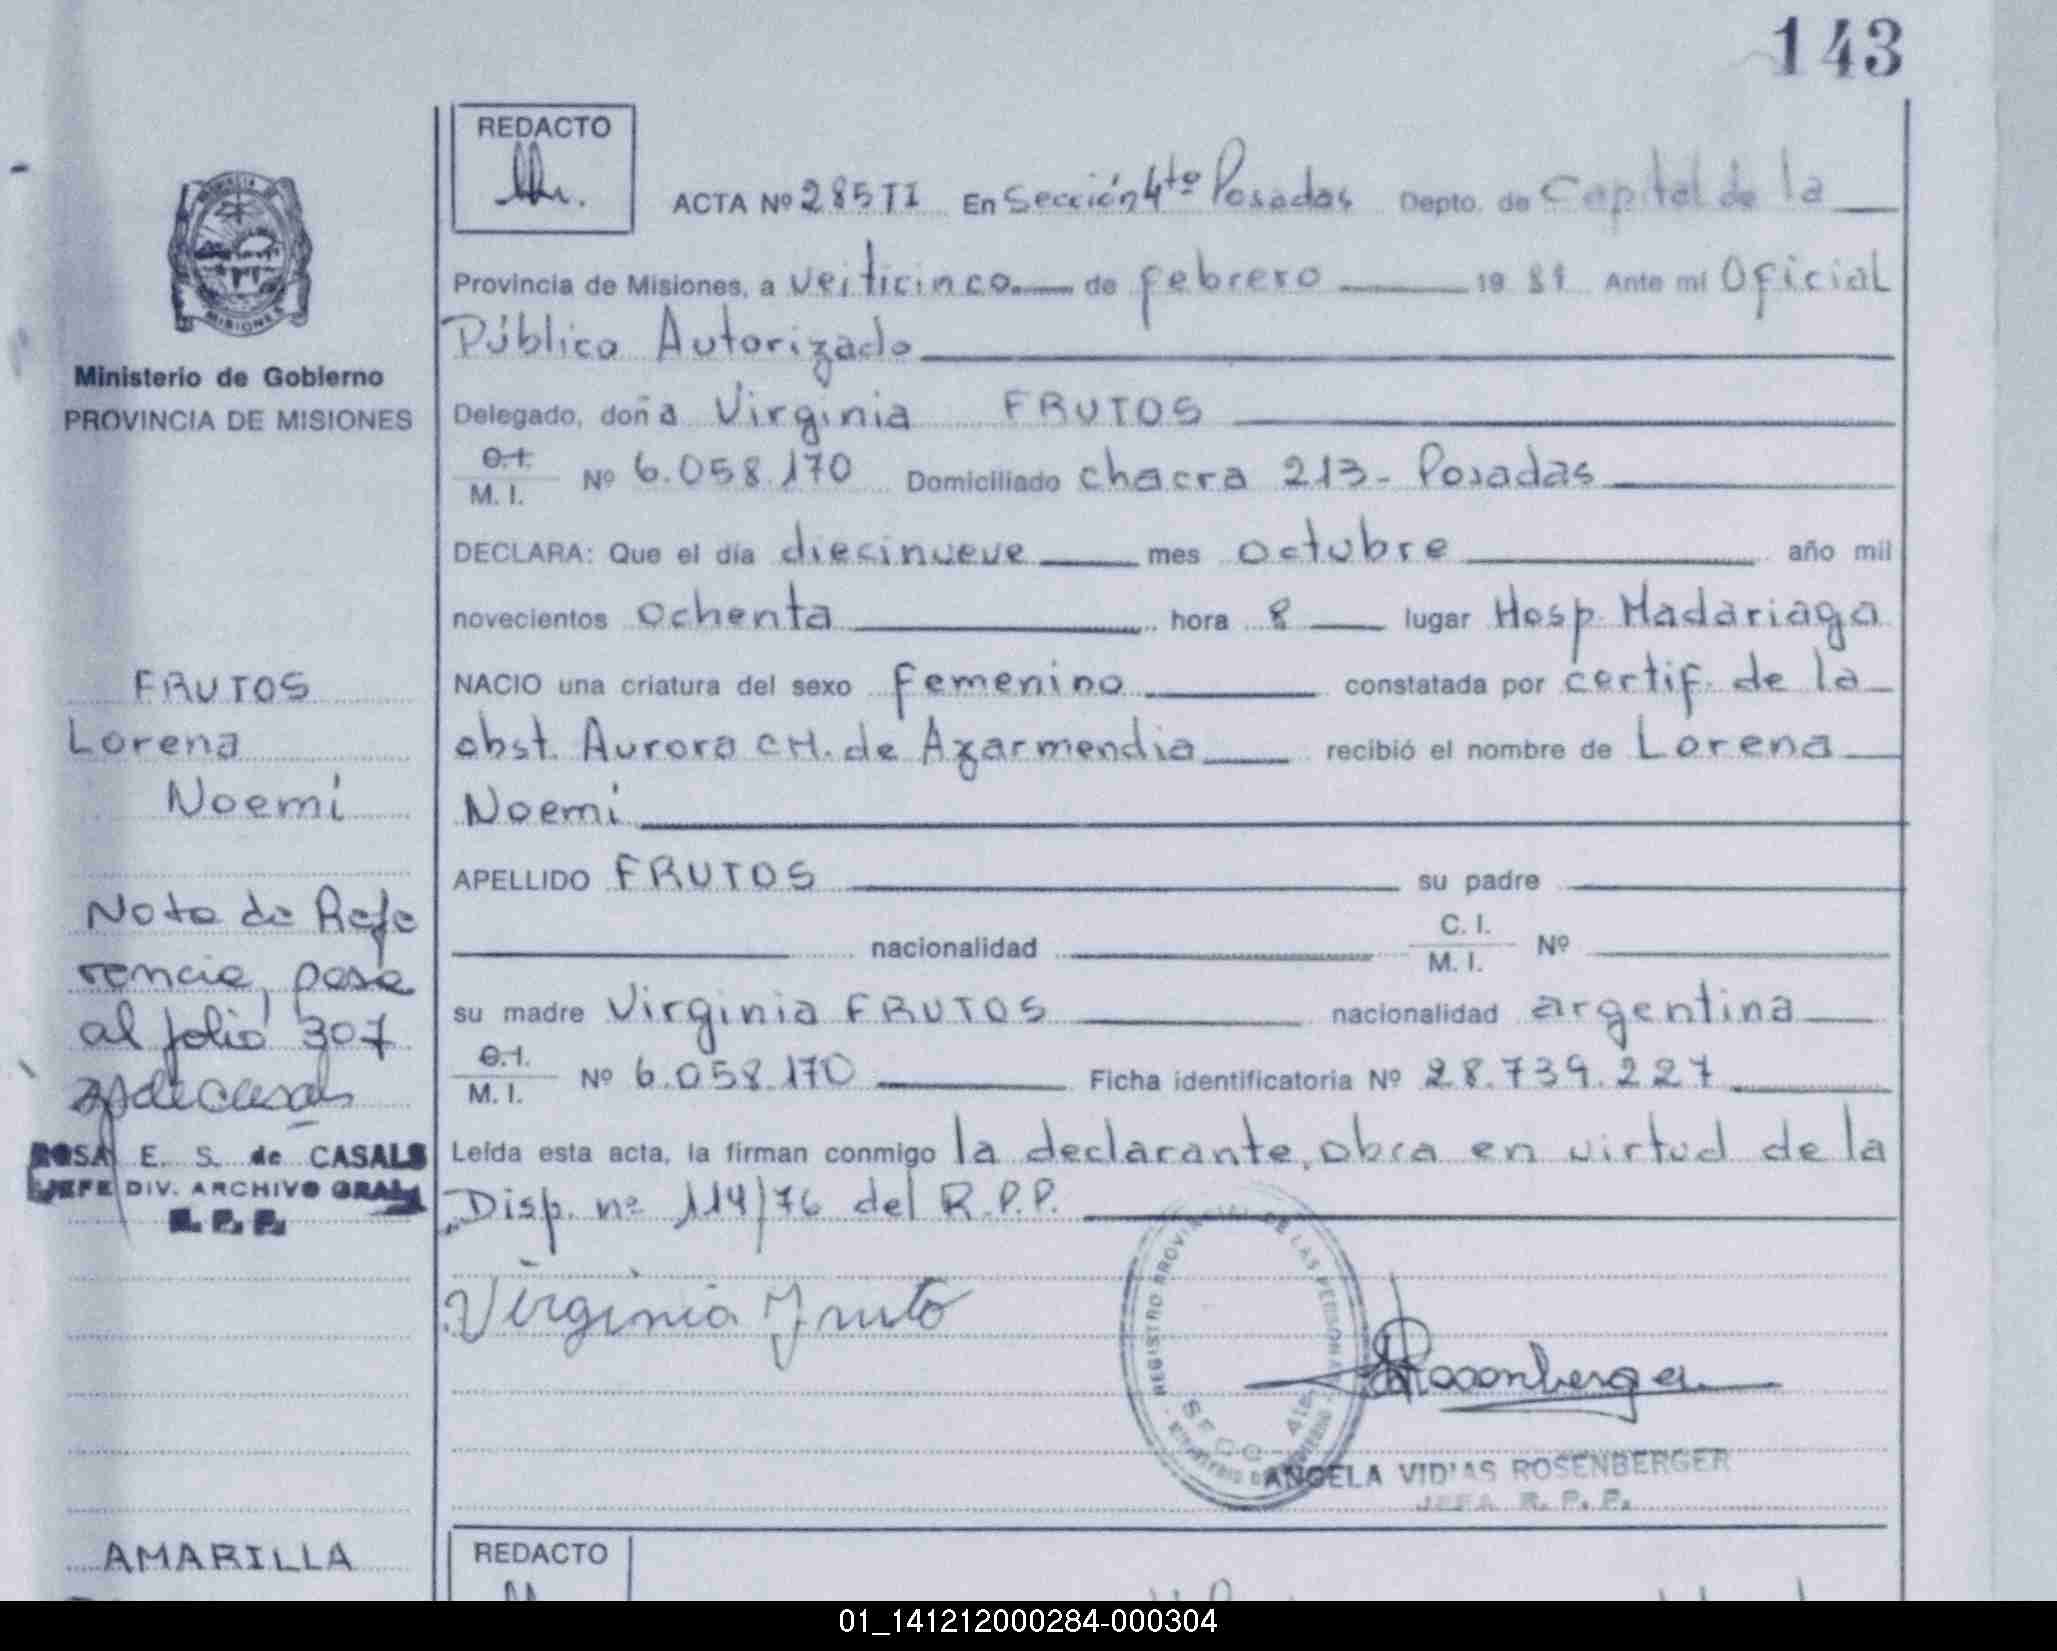 143
REDACTO
ACTA Nº 285 TI En Sección 4to Posadas Depto. de Capital de la
Provincia de Misiones, a veiticinco de febrero 19 81 Ante mí Oficial
Público Autorizado
Ministerio de Gobierno
PROVINCIA DE MISIONES
MISIONES
Delegado, doña Virginia FRUTOS
C.I.
M. I. Nº 6.058.170 Domiciliado chacra 213- Posadas
DECLARA: Que el día diecinueve mes octubre año mil
novecientos ochenta hora 8 lugar Hosp. Madariaga
NACIO una criatura del sexo femenino constatada por certif. de la
obst. Aurora CH. de Azarmendia recibió el nombre de Lorena
Noemi
APELLIDO FRUTOS su padre
nacionalidad C. I.
M. I. Nº
su madre Virginia FRUTOS nacionalidad argentina
C.I.
M. I. Nº 6.058.170 Ficha identificatoria Nº 28.739.227
Leída esta acta, la firman conmigo la declarante, obra en virtud de la
Disp. nº 114/76 del R.P.P.
Virginia Fruto
Rosenberger
REGISTRO PROVINCIAL DE LAS PERSONAS
SECC. 4ta
ANGELA VIDIAS ROSENBERGER
JEFA R. P. P.
FRUTOS
Lorena
Noemí
Nota de Refe
rencia, pasa
al folio 307
ROSA E. S. de CASALS
JEFE DIV. ARCHIVO GRAL
R. P. P.
AMARILLA
REDACTO
01_141212000284-000304